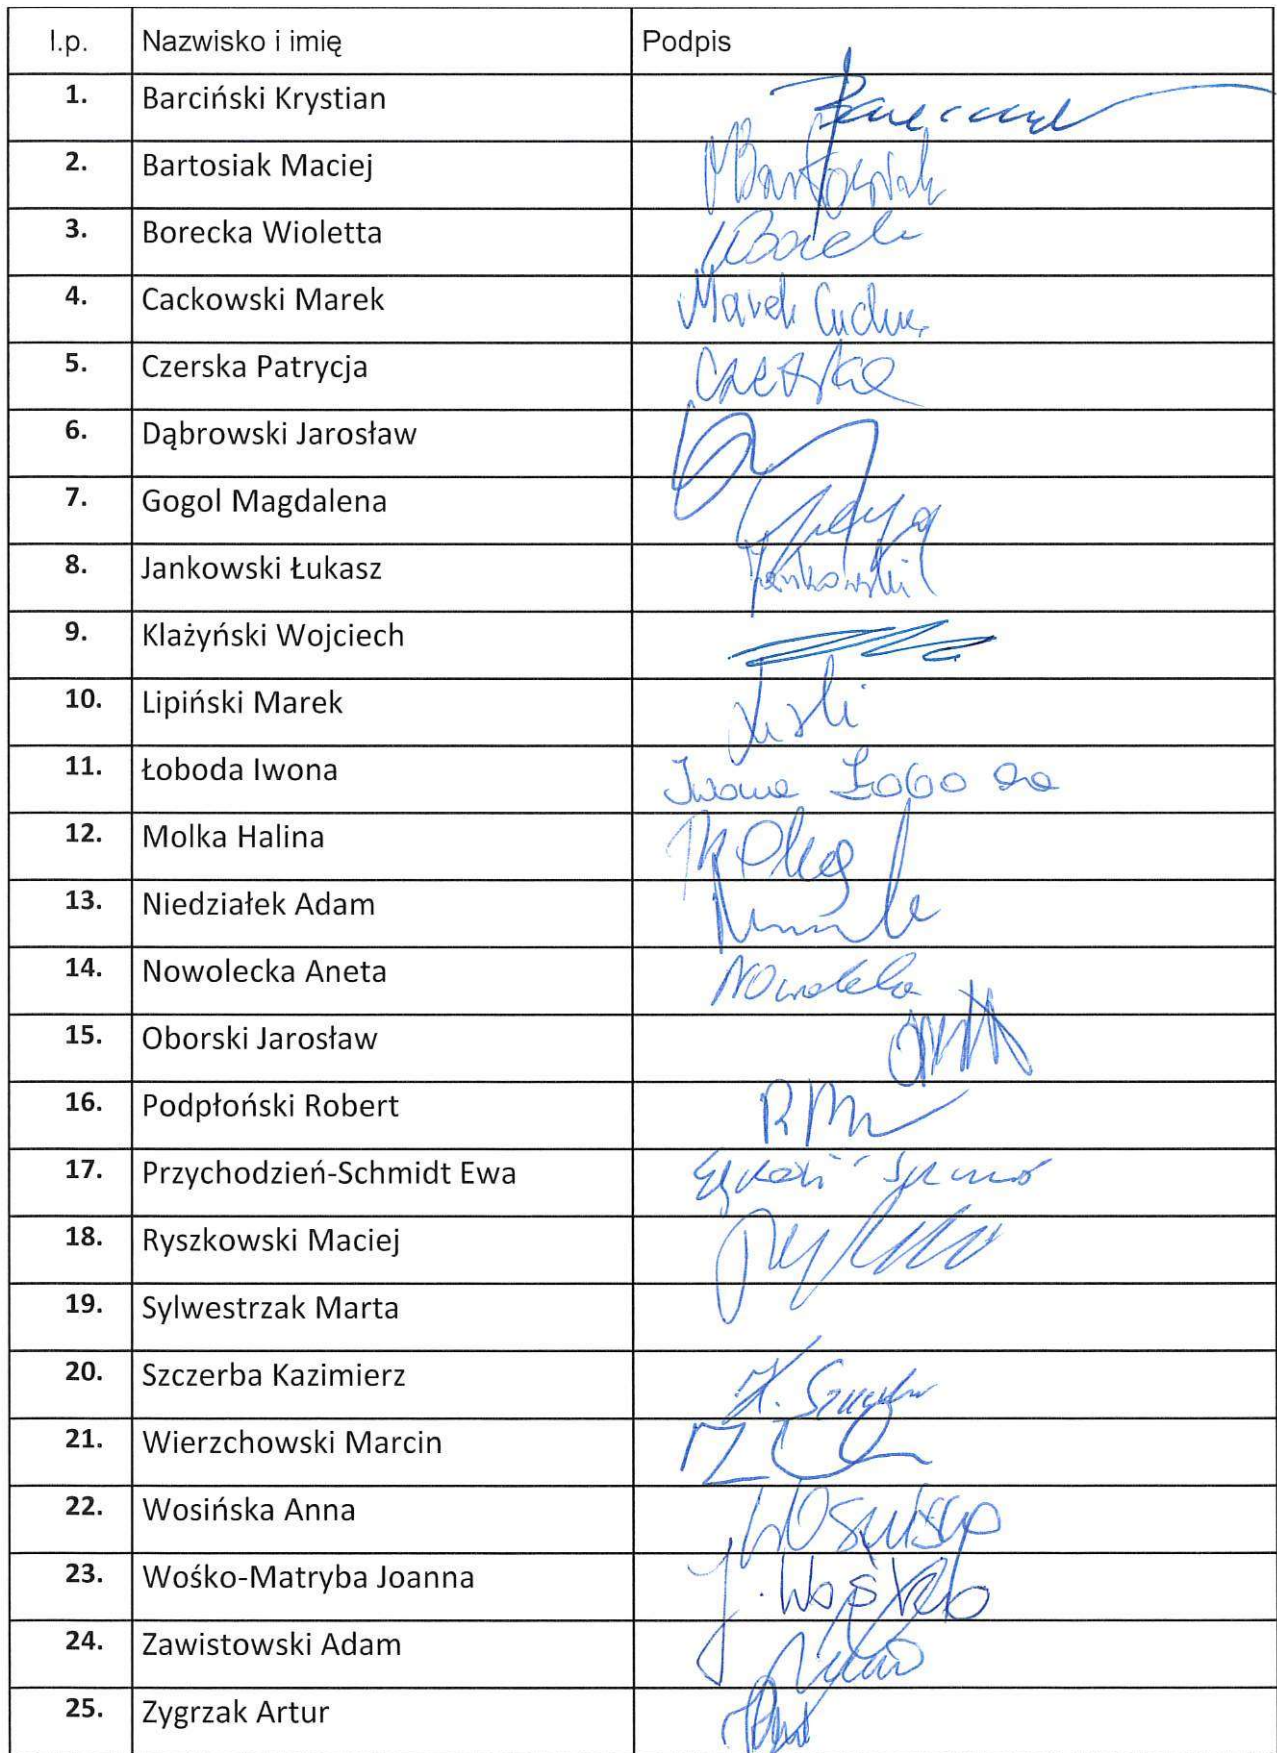 l.p. Nazwisko i imię Podpis
1. Barciński Krystian
2. Bartosiak Maciej MBartosiak
3. Borecka Wioletta
4. Cackowski Marek Marek
5. Czerska Patrycja Czerska
6. Dąbrowski Jarosław
7. Gogol Magdalena
8. Jankowski Łukasz Jankowski
9. Klażyński Wojciech
10. Lipiński Marek
11. Łoboda Iwona Iwona Łoboda
12. Molka Halina Molka
13. Niedziałek Adam
14. Nowolecka Aneta Nowolecka
15. Oborski Jarosław
16. Podpłoński Robert
17. Przychodzień-Schmidt Ewa
18. Ryszkowski Maciej
19. Sylwestrzak Marta
20. Szczerba Kazimierz K.
21. Wierzchowski Marcin
22. Wosińska Anna Wosińska
23. Wośko-Matryba Joanna J. Wośko
24. Zawistowski Adam
25. Zygrzak Artur